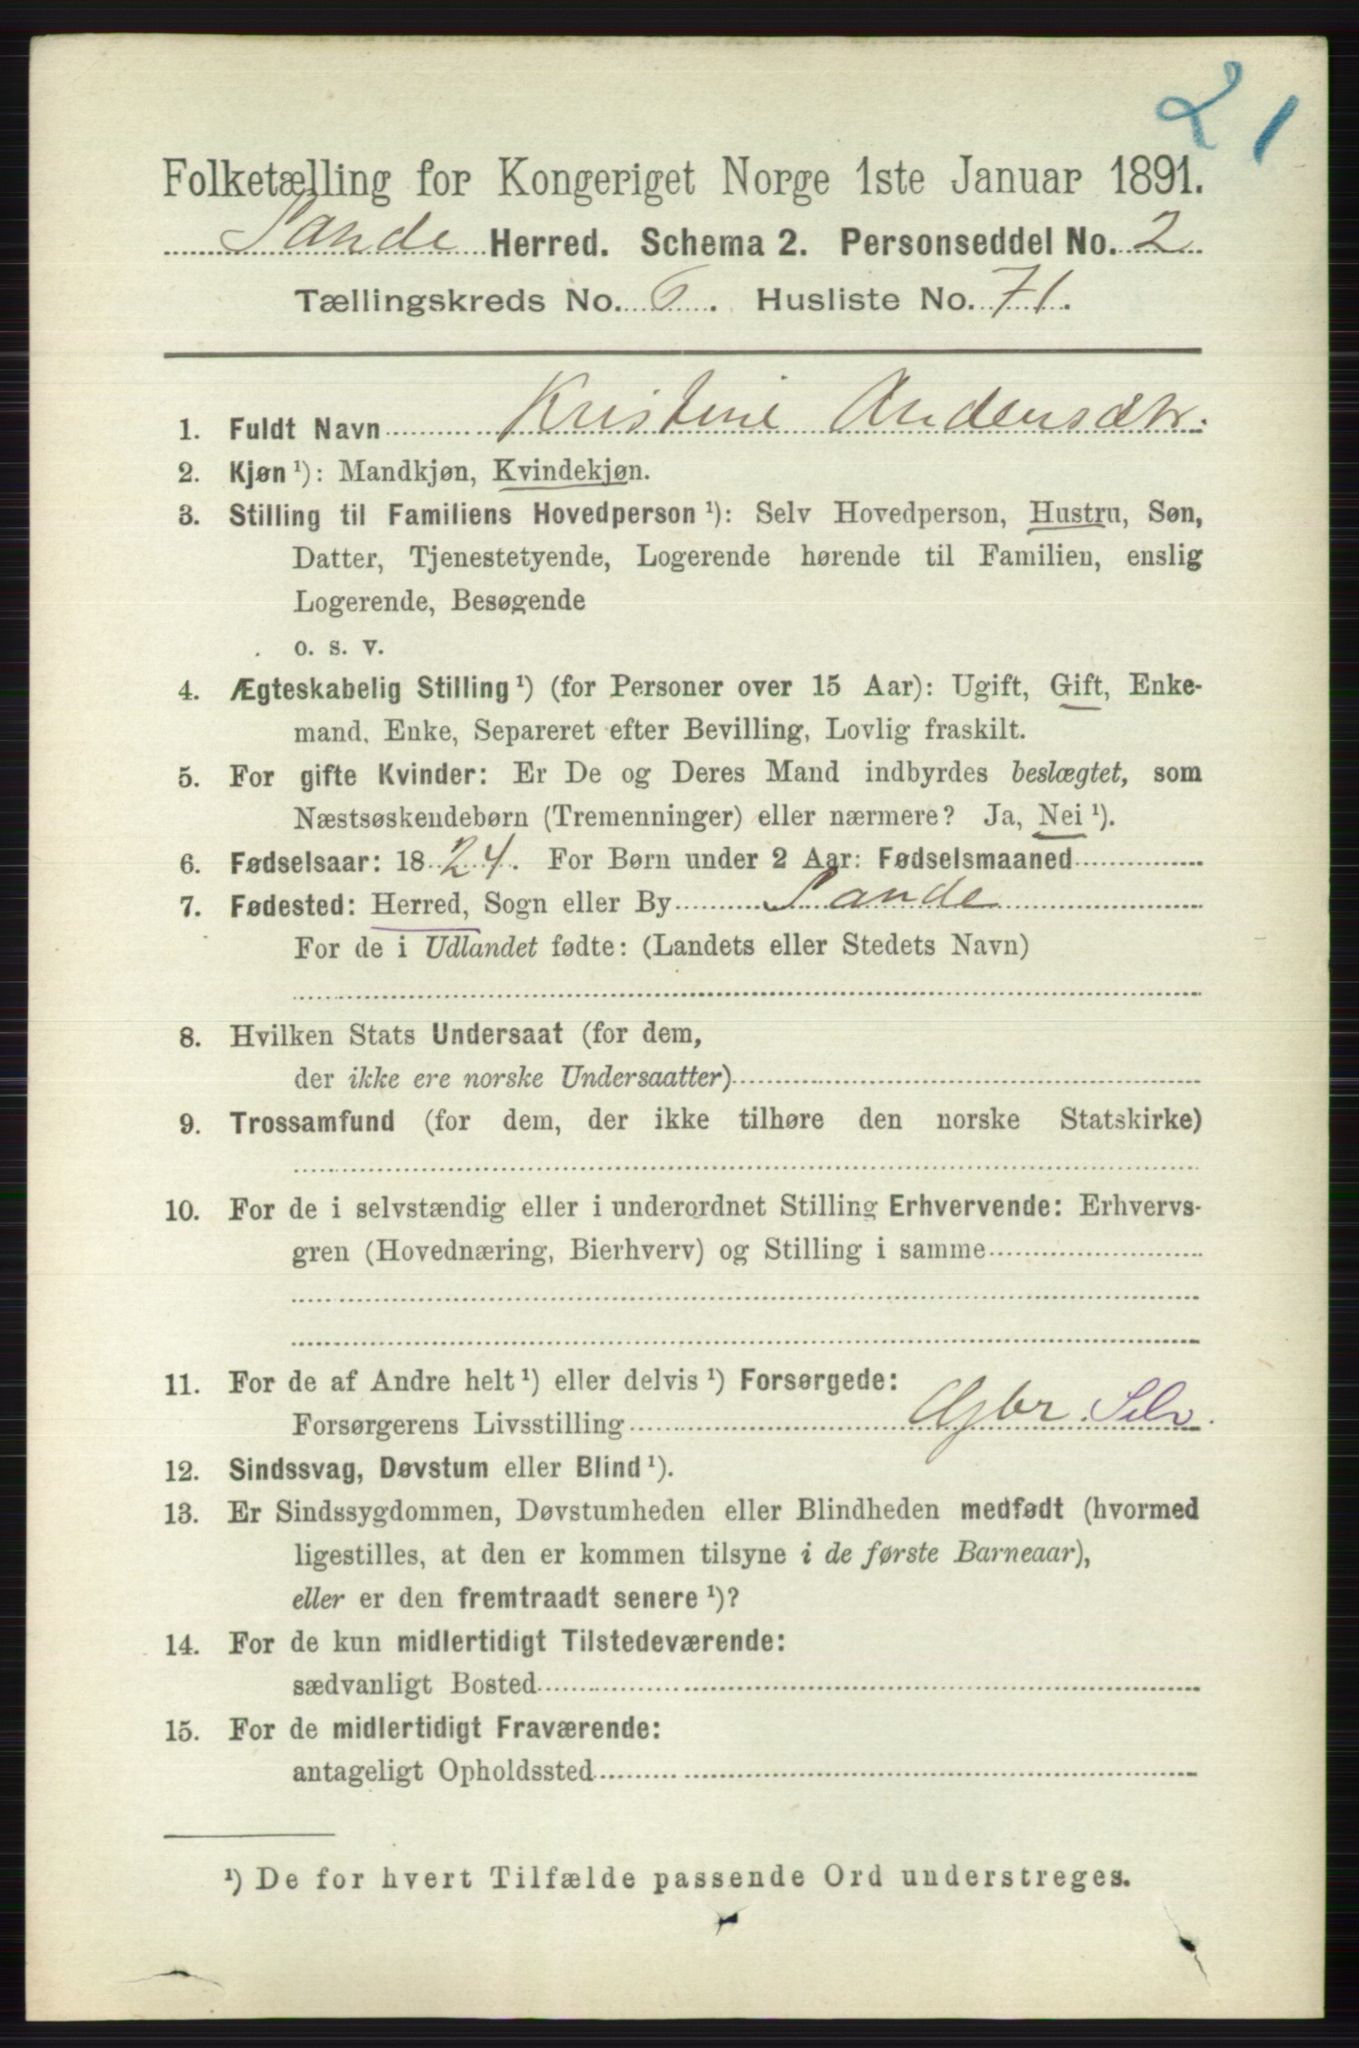 21
Folketælling for Kongeriget Norge 1ste Januar 1891.
Sande Herred. Schema 2. Personseddel No. 2
Tællingskreds No. 6. Husliste No. 71.
1. Fuldt Navn Kristine Andersdtr.
2. Kjøn ¹): Mandkjøn, Kvindekjøn.
3. Stilling til Familiens Hovedperson ¹): Selv Hovedperson, Hustru, Søn,
Datter, Tjenestetyende, Logerende hørende til Familien, enslig
Logerende, Besøgende
o. s. v.
4. Ægteskabelig Stilling ¹) (for Personer over 15 Aar): Ugift, Gift, Enke-
mand, Enke, Separeret efter Bevilling, Lovlig fraskilt.
5. For gifte Kvinder: Er De og Deres Mand indbyrdes beslægtet, som
Næstsøskendebørn (Tremenninger) eller nærmere? Ja, Nei ¹).
6. Fødselsaar: 1824. For Børn under 2 Aar: Fødselsmaaned
7. Fødested: Herred, Sogn eller By Sande
For de i Udlandet fødte: (Landets eller Stedets Navn)
8. Hvilken Stats Undersaat (for dem,
der ikke ere norske Undersaatter)
9. Trossamfund (for dem, der ikke tilhøre den norske Statskirke)
10. For de i selvstændig eller i underordnet Stilling Erhvervende: Erhvervs-
gren (Hovednæring, Bierhverv) og Stilling i samme
11. For de af Andre helt ¹) eller delvis ¹) Forsørgede:
Forsørgerens Livsstilling Gbr. Selv.
12. Sindssvag, Døvstum eller Blind ¹).
13. Er Sindssygdommen, Døvstumheden eller Blindheden medfødt (hvormed
ligestilles, at den er kommen tilsyne i de første Barneaar),
eller er den fremtraadt senere ¹)?
14. For de kun midlertidigt Tilstedeværende:
sædvanligt Bosted
15. For de midlertidigt Fraværende:
antageligt Opholdssted
¹) De for hvert Tilfælde passende Ord understreges.